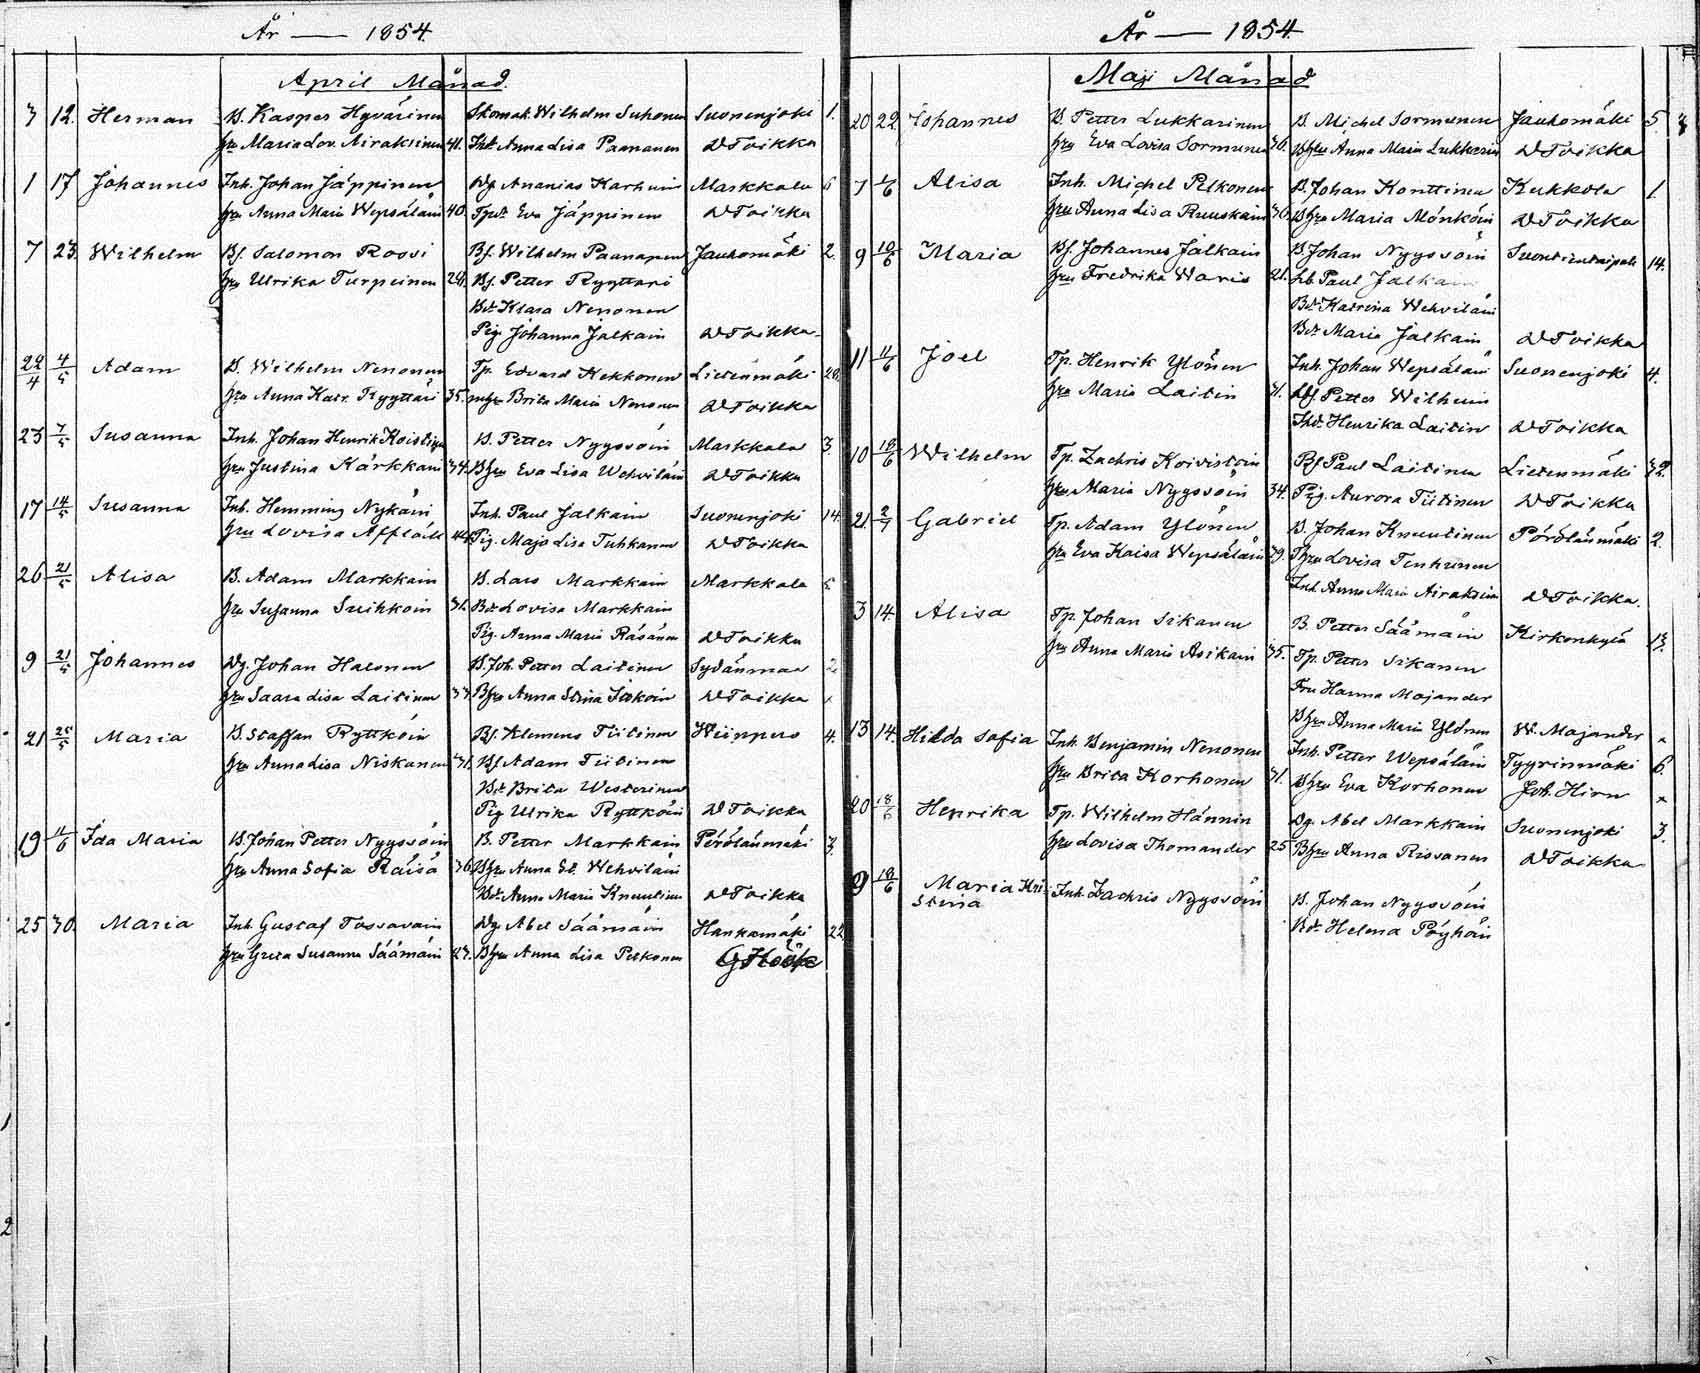 År — 1854.
April Månad.
3 12. Herman B. Kasper Hyvärinen Skomak. Wilhelm Suhonen Suonenjoki 1.
hru Maria Lov. Airaksinen 41. Inh. Anna Lisa Paananen W Toikka
1 17 Johannes Inh. Johan Jäppinen Dg Ananias Karhuin Markkala 6
hru Anna Maria Wepsäläin 40. Tpdr Eva Jäppinen W Toikka
7 23. Wilhelm Bf. Salomon Rossi Bf. Wilhelm Paananen Jauhomäki 2.
hru Ulrika Turpeinen 29. Bf. Petter Ryyttäri
Bdr Klara Nenonen
Pig. Johanna Jalkain W Toikka
22/4 4/5 Adam B. Wilhelm Nenonen Tp. Edvard Kekkonen Lietenmäki 28.
hru Anna Katr. Ryyttäri 35. mhru Brita Maria Nenonen W Toikka
23 7/5 Susanna Inh. Johan Henrik Koistinen B. Petter Nyyssöin Markkala 3
hru Justina Kärkkäin 34. Bhru Eva Lisa Wehviläin W Toikka
17 14/5 Susanna Inh. Hemming Nykäin Inh. Paul Jalkain Suonenjoki 14.
hru Lovisa Afflält 44. Pig. Maja Lisa Tuhkanen W Toikka
26 21/5 Alisa B. Adam Markkain B. Lars Markkain Markkala 5
hru Susanna Suihkoin 31. Bdr Lovisa Markkain
Pig. Anna Maria Räsänen W Toikka
9 21/5 Johannes Dg. Johan Halonen B. Joh. Petter Laitinen Sydänmaa 2
hru Saara Lisa Laitinen 33. Bhru Anna Stina Jiskoin W Toikka
21 25/5 Maria B. Staffan Ryttköin Bf. Klemens Tiitinen Wiippero 4.
hru Anna Lisa Niskanen 31. Bf Adam Tiitinen
Bdr Brita Westerinen
Pig Ulrika Ryttköin W Toikka
19 11/6 Ida Maria B. Johan Petter Nyyssöin B. Petter Markkain Pörölänmäki 3.
hru Anna Sofia Räisä 36. Bhru Anna El. Wehviläin
Bdr Anna Maria Knuutinen W Toikka
25 30. Maria Inh. Gustaf Tossavain Dg Abel Säämäin Hankamäki 22
hru Greta Susanna Säämäin 27. Bhru Anna Lisa Pelkonen G Höök
År — 1854.
Maji Månad
20 22. Johannes B Petter Lukkarinen B. Michel Sormunen Jauhomäki 5.
hru Eva Lovisa Sormunen 36. Bhru Anna Maria Lukkarin W Toikka
7 1/6 Alisa Inh. Michel Pelkonen B. Johan Konttinen Kukkola 1.
hru Anna Lisa Ruuskain 36. Bhru Maria Mönköin W Toikka
9 10/6 Maria Bf. Johannes Jalkain B. Johan Nyyssöin Suontientaipale 14.
hru Fredrika Waris 21. Lb Paul Jalkain
Bdr Katrina Wehviläin
Bdr Maria Jalkain W Toikka
11 11/6 Joel Tp. Henrik Ylönen Inh. Johan Wepsäläin Suonenjoki 4.
hru Maria Laitin 41. Dg. Petter Wilhuin
Ihdr Henrika Laitin W Toikka
10 18/6 Wilhelm Tp. Zachris Koivistoin Bf Paul Laitinen Lietenmäki 32.
hru Maria Nyyssöin 34. Pig. Aurora Tiitinen W Toikka
21. 2/7 Gabriel Tp. Adam Ylönen B. Johan Knuutinen Pörölänmäki 2.
hru Eva Kaisa Wepsäläin 39. Thru Lovisa Tenhunen
Inh. Anna Maria Airaksin W Toikka.
3 14. Alisa Tp. Johan Sikanen B. Petter Säämäin Kirkonkylä 13.
hru Anna Maria Asikain 35. Tp. Petter Sikanen
Fru Hanna Majander
Bhru Anna Maria Ylönen W. Majander
13 14. Hilda Sofia Inh. Benjamin Nenonen Inh. Petter Wepsäläin Tyyrinmäki 6.
hru Brita Korhonen 41. Bhru Eva Korhonen Joh. Hirn
20 18/6 Henrika Tp. Wilhelm Hännin Dg. Abel Markkain Suonenjoki 3.
hru Lovisa Thomander 25 Bhru Anna Rissanen W Toikka
9 18/6 Maria Kri- Inh. Zachris Nyyssöin B. Johan Nyyssöin
stina Bdr Helena Pöyhöin